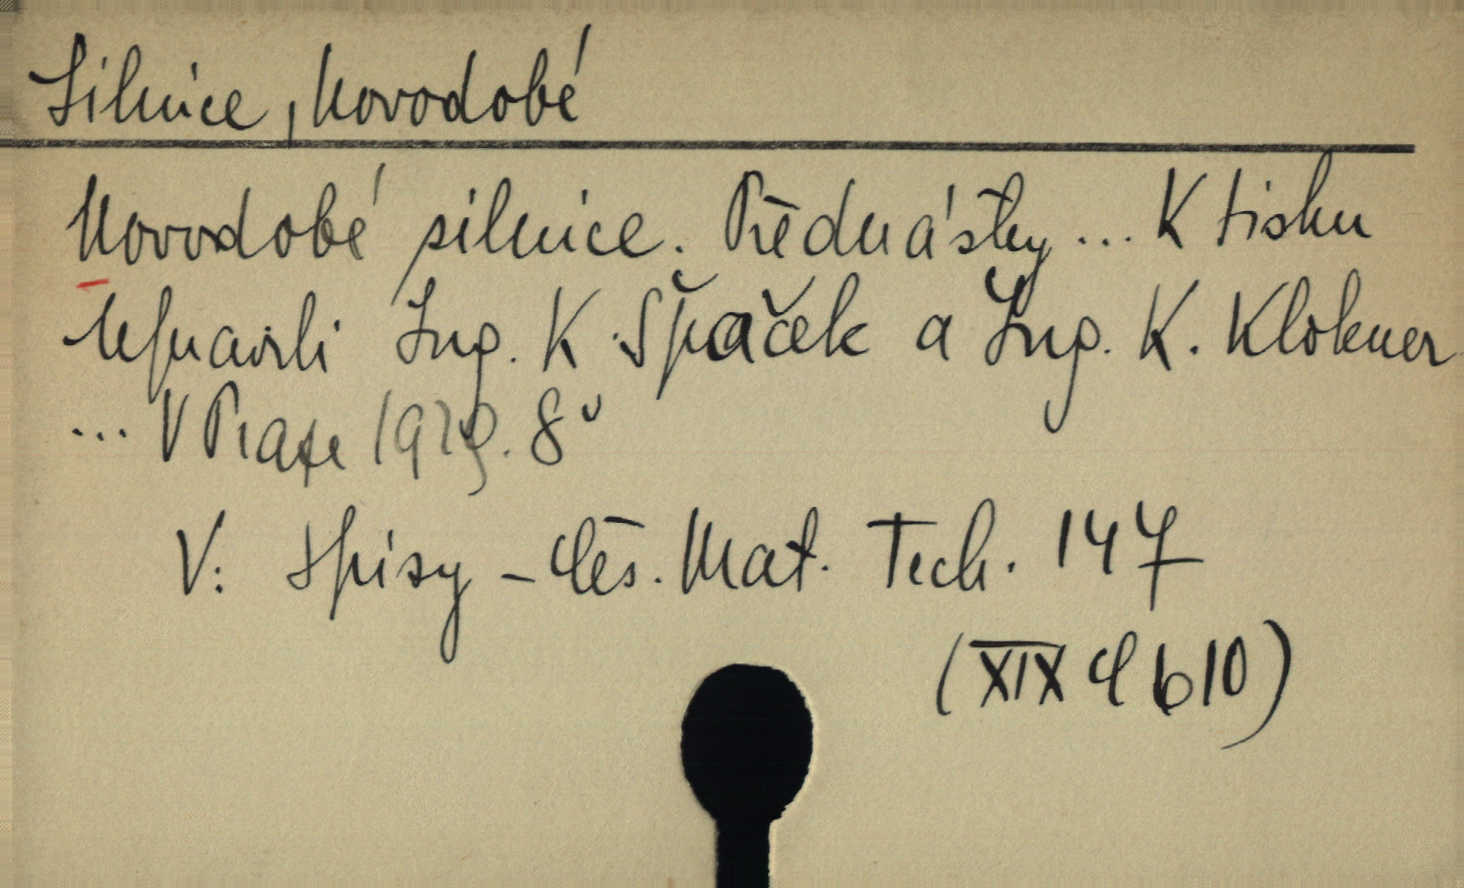 Silnice, Novodobé
Novodobé silnice. Přednášky ... K tisku
upravili Ing. K. Špaček a Ing. K. Klokner
... V Praze 1929. 8°
V: Spisy - Čes. Mat. Tech. 147
(XIX C b 10)